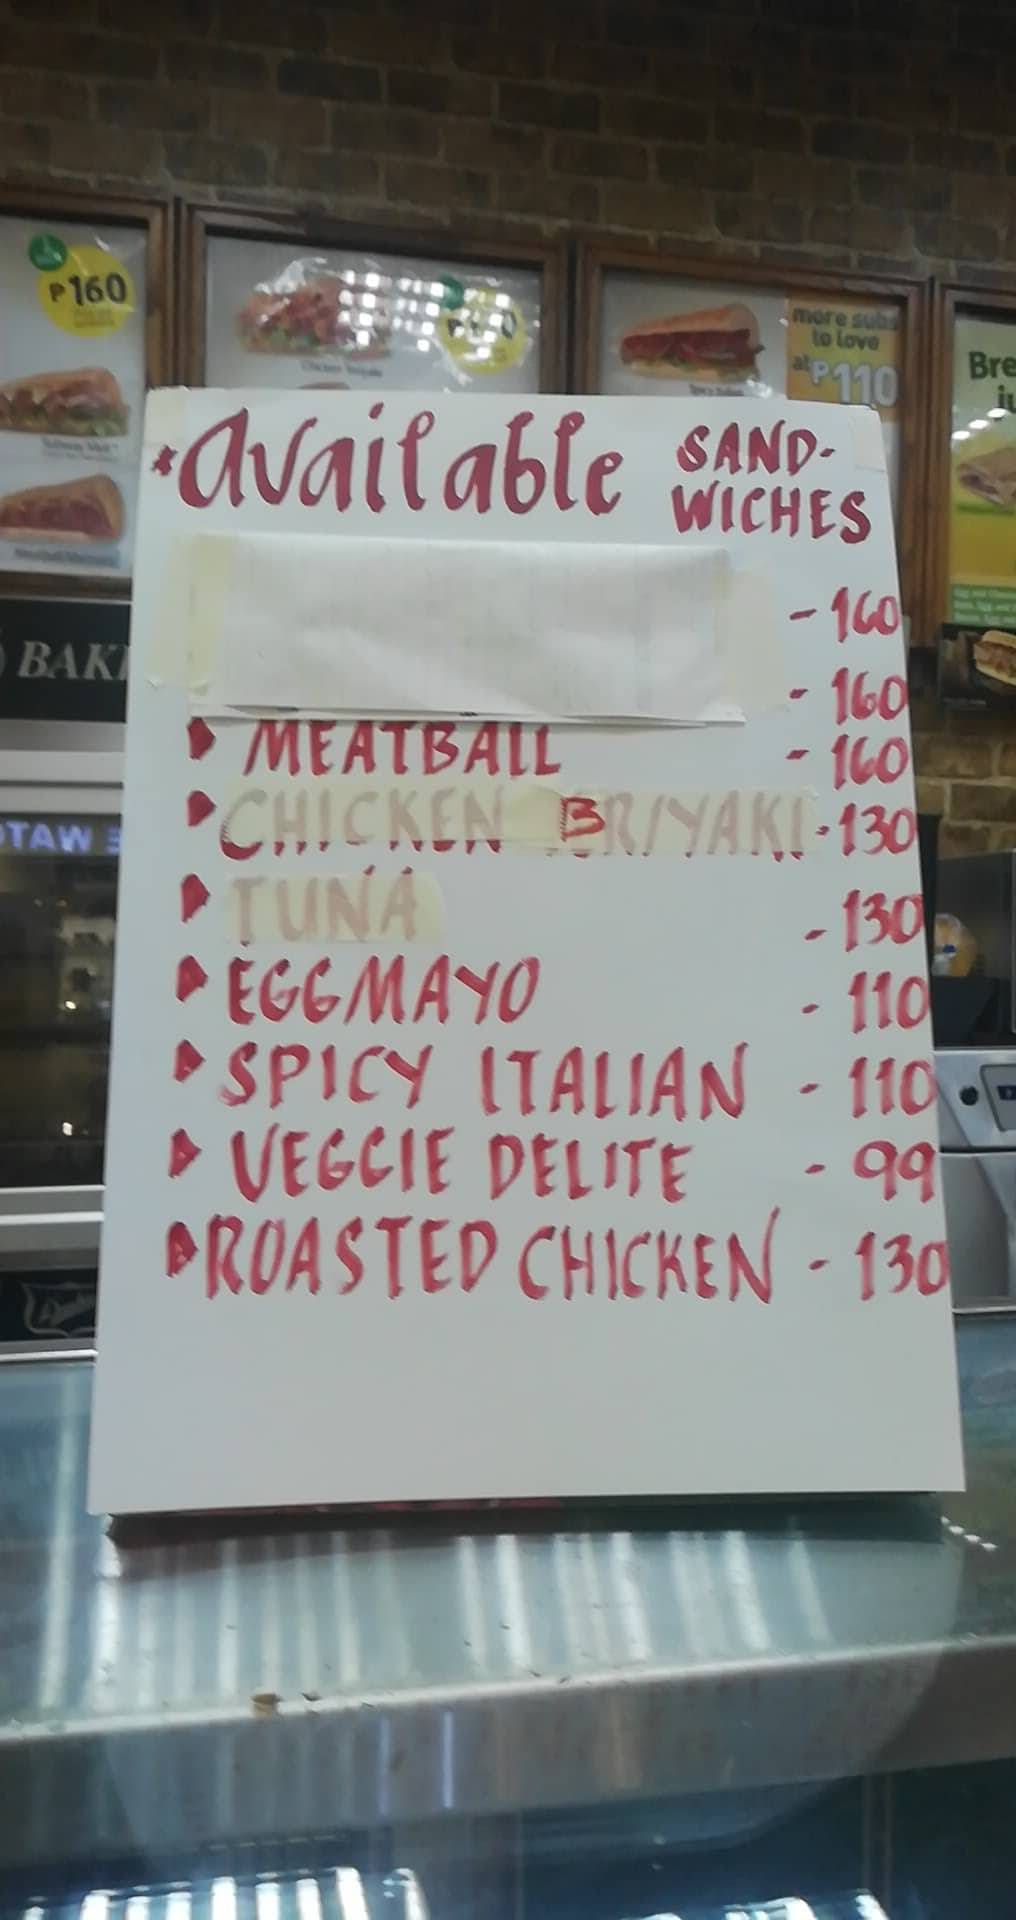 ₱160
more subs
to love
at ₱110
Bre
BAKE
*Available SAND-
WICHES
- 160
- 160
MEATBALL - 160
CHICKEN BRIYAKI - 130
TUNA - 130
EGGMAYO - 110
SPICY ITALIAN - 110
VEGGIE DELITE - 99
ROASTED CHICKEN - 130